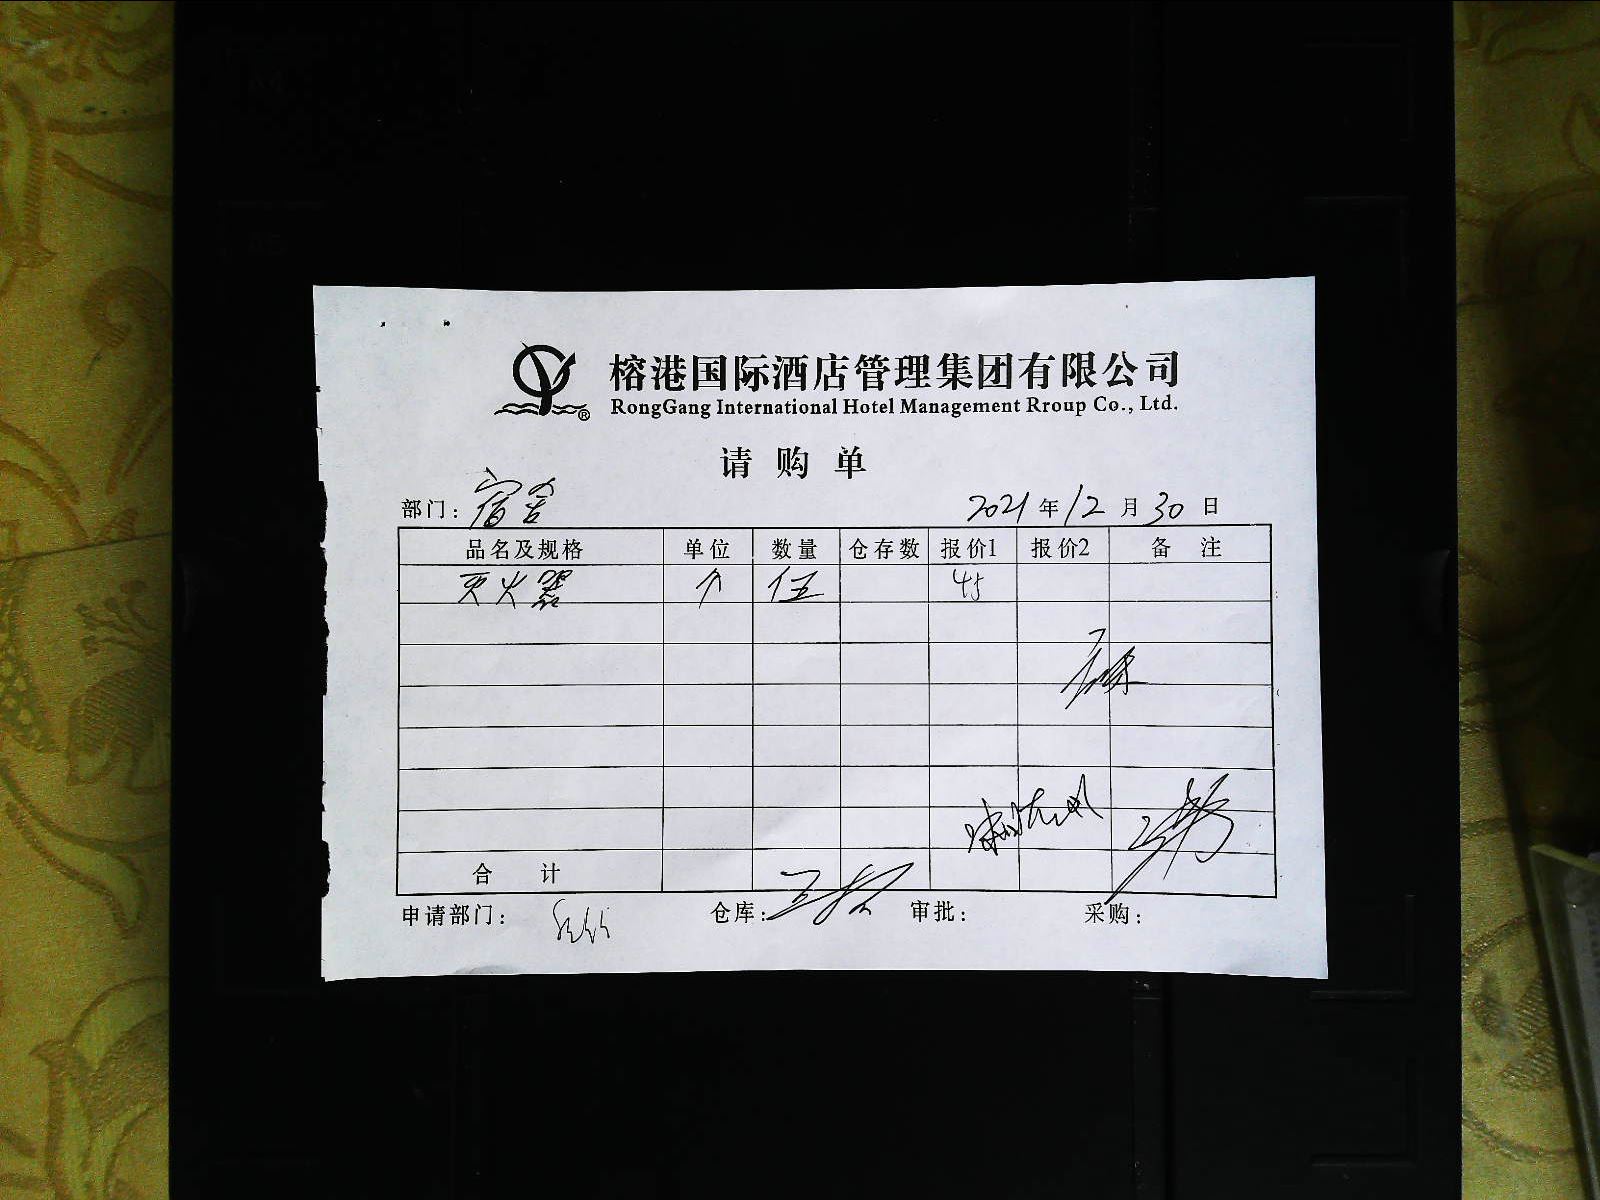 榕港国际酒店管理集团有限公司
RongGang International Hotel Management Rroup Co., Ltd.
请购单
部门: 宿舍 2021年12月30日
品名及规格 单位 数量 仓存数 报价1 报价2 备注
灭火器 个 伍 45
合计
申请部门: 仓库: 审批: 采购: